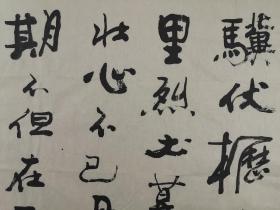 驥伏櫪
里烈士暮
壮心不已
期不但在